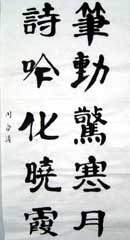 筆動驚寒月
詩吟化曉霞